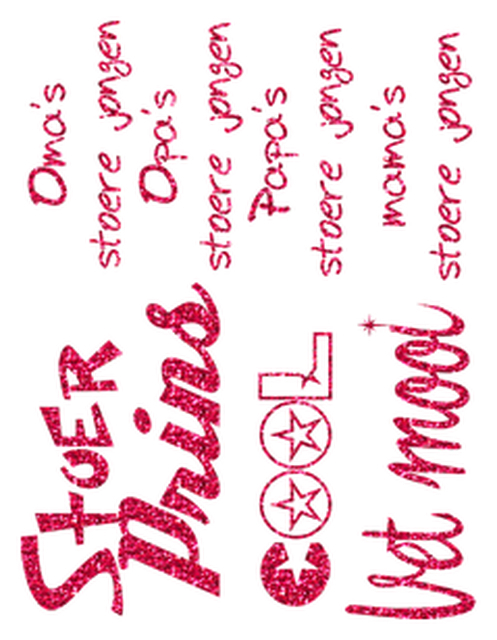 Oma's
stoere jongen
Opa's
stoere jongen
Papa's
stoere jongen
mama's
stoere jongen
StoER
Prins
COOL
Vet mooi